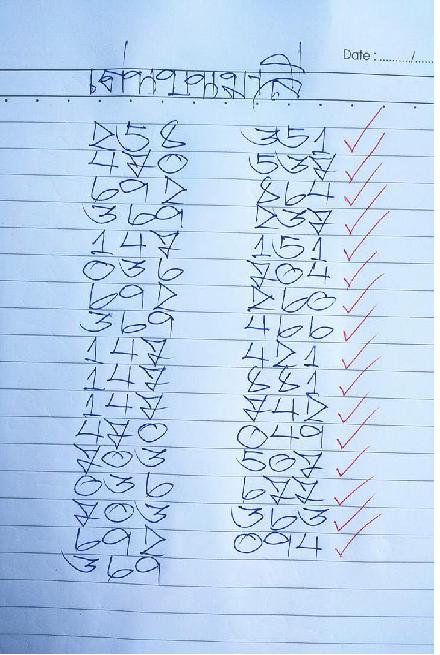 Date : ......../......
258 351
470 537
692 864
369 237
147 151
036 704
692 260
369 466
147 421
147 881
147 742
470 049
703 507
036 677
703 363
692 094
369